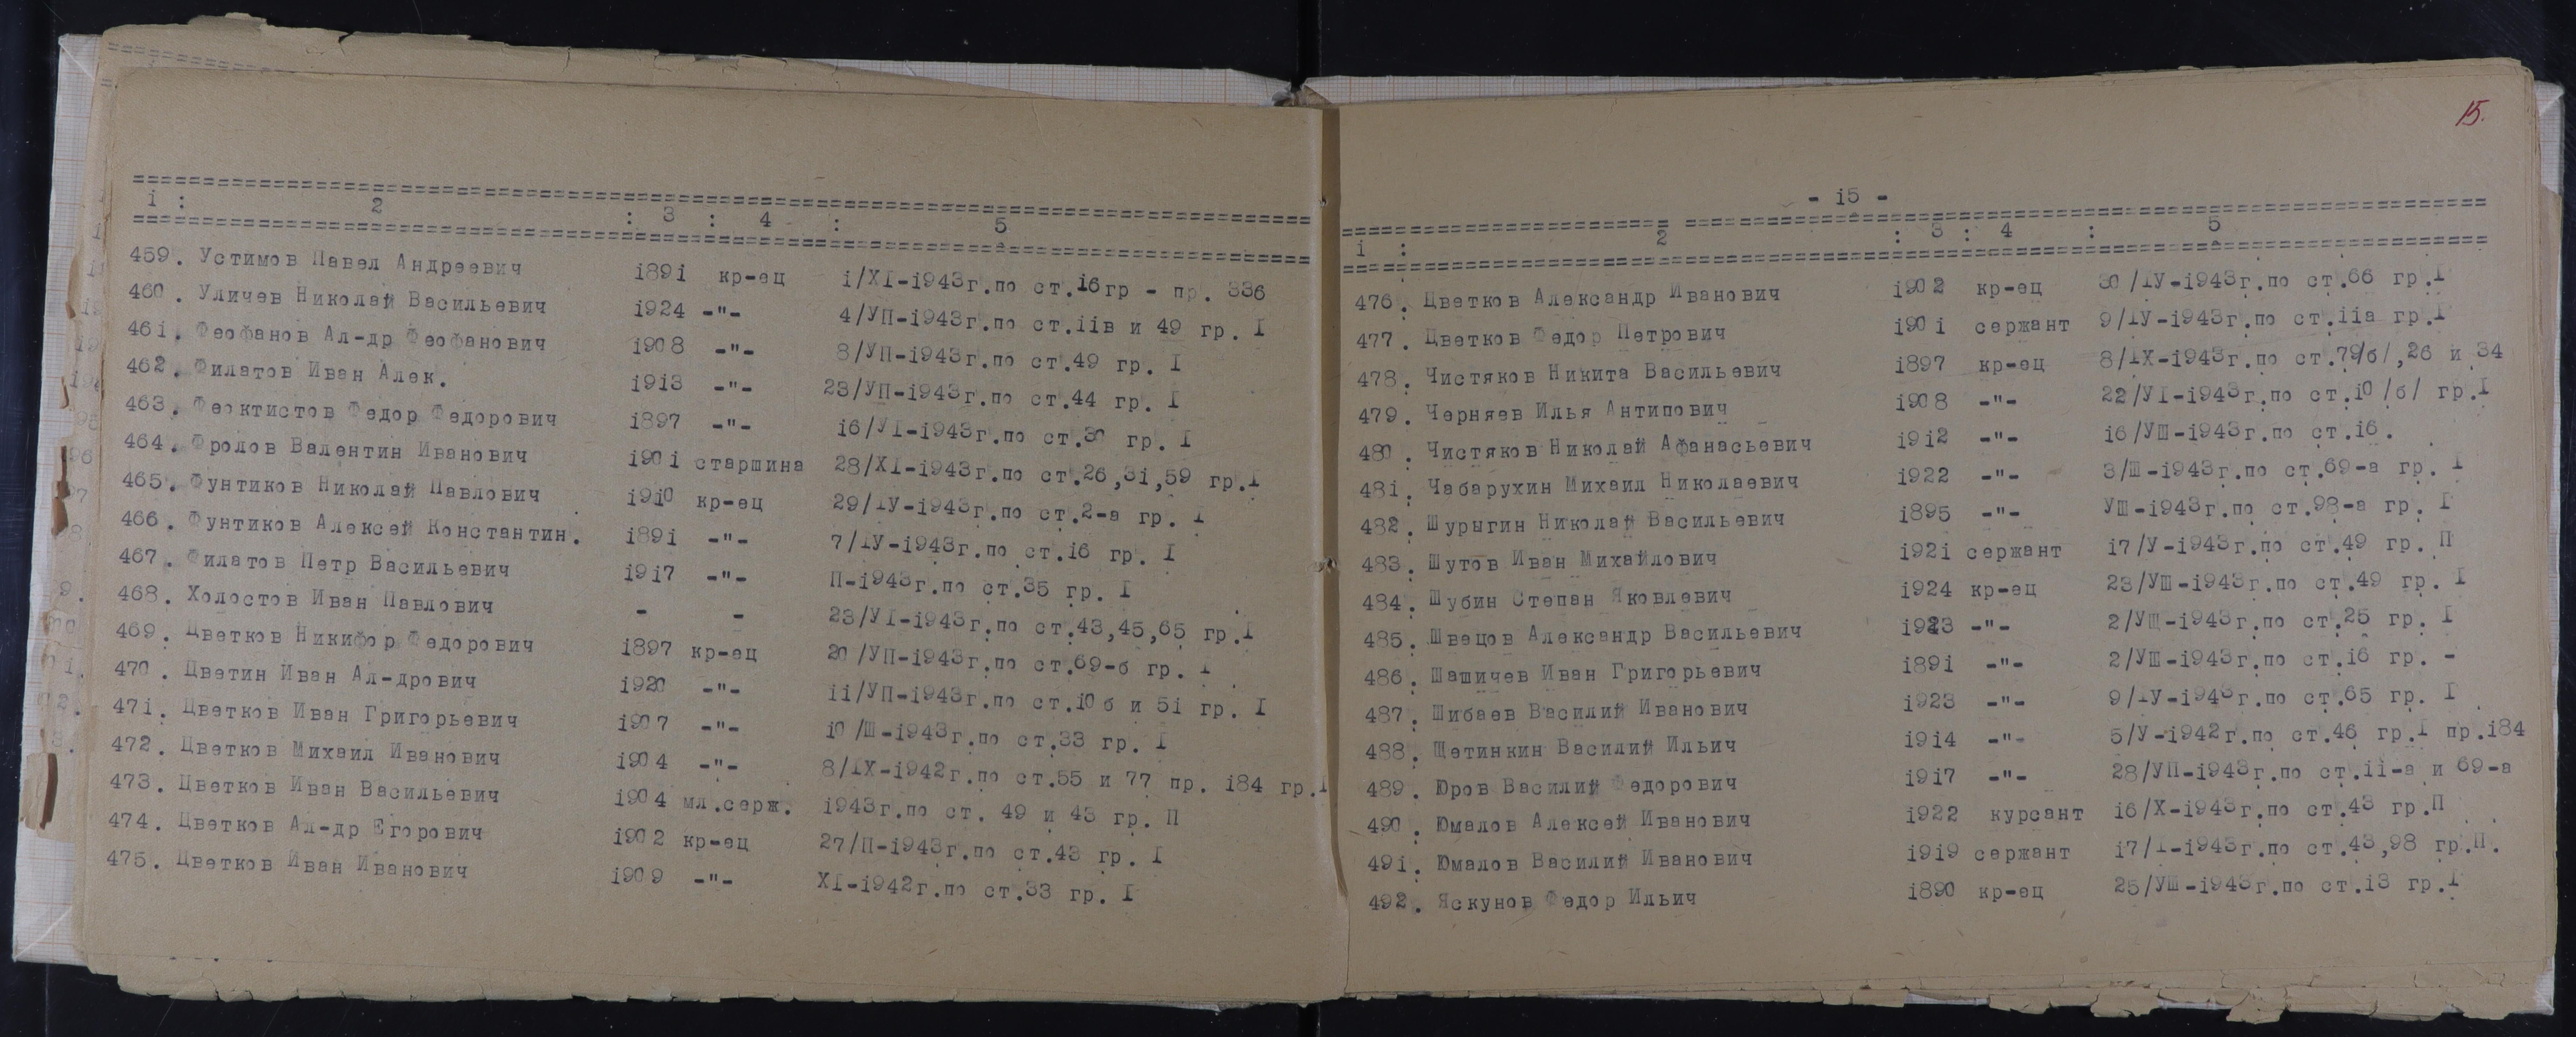 1 : 2 : 3 : 4 : 5
459. Устимов Павел Андреевич 1891 кр-ец 1/XI-1943г.по ст.16гр - пр. 336
460. Уличев Николай Васильевич 1924 -"- 4/УП-1943г.по ст.11в и 49 гр. I
461. Феофанов Ал-др Феофанович 1908 -"- 8/УП-1943г.по ст.49 гр. I
462. Филатов Иван Алек. 1913 -"- 23/УП-1943г.по ст.44 гр. I
463. Феоктистов Федор Федорович 1897 -"- 16/УI-1943г.по ст.30 гр. I
464. Фролов Валентин Иванович 1901 старшина 28/XI-1943г.по ст.26,31,59 гр.I
465. Фунтиков Николай Павлович 1910 кр-ец 29/IУ-1943г.по ст.2-а гр. I
466. Фунтиков Алексей Константин. 1891 -"- 7/IУ-1943г.по ст.16 гр. I
467. Филатов Петр Васильевич 1917 -"- П-1943г.по ст.35 гр. I
468. Холостов Иван Павлович - - 23/УI-1943г.по ст.43,45,65 гр.I
469. Цветков Никифор Федорович 1897 кр-ец 20/УП-1943г.по ст.69-б гр. I
470. Цветин Иван Ал-дрович 1920 -"- 11/УП-1943г.по ст.10б и 51 гр. I
471. Цветков Иван Григорьевич 1907 -"- 10/Ш-1943г.по ст.33 гр. I
472. Цветков Михаил Иванович 1904 -"- 8/IX-1942г.по ст.55 и 77 пр. 184 гр.I
473. Цветков Иван Васильевич 1904 мл.серж. 1943г.по ст. 49 и 43 гр. П
474. Цветков Ал-др Егорович 1902 кр-ец 27/П-1943г.по ст.43 гр. I
475. Цветков Иван Иванович 1909 -"- XI-1942г.по ст.33 гр. I
15.
- 15 -
1 : 2 : 3 : 4 : 5
476. Цветков Александр Иванович 1902 кр-ец 30/IУ-1943г.по ст.66 гр.I
477. Цветков Федор Петрович 1901 сержант 9/IУ-1943г.по ст.11а гр.I
478. Чистяков Никита Васильевич 1897 кр-ец 8/IX-1943г.по ст.79/б/,26 и 34
479. Черняев Илья Антипович 1908 -"- 22/УI-1943г.по ст.10/б/ гр.I
480. Чистяков Николай Афанасьевич 1912 -"- 16/УШ-1943г.по ст.16.
481. Чабарухин Михаил Николаевич 1922 -"- 3/Ш-1943г.по ст.69-а гр. I
482. Шурыгин Николай Васильевич 1895 -"- УШ-1943г.по ст.98-а гр. I
483. Шутов Иван Михайлович 1921 сержант 17/У-1943г.по ст.49 гр. П
484. Шубин Степан Яковлевич 1924 кр-ец 23/УШ-1943г.по ст.49 гр. I
485. Швецов Александр Васильевич 1923 -"- 2/УШ-1943г.по ст.25 гр. I
486. Шашичев Иван Григорьевич 1891 -"- 2/УШ-1943г.по ст.16 гр. -
487. Шибаев Василий Иванович 1923 -"- 9/IУ-1943г.по ст.65 гр. I
488. Щетинкин Василий Ильич 1914 -"- 5/У-1942г.по ст.46 гр.I пр.184
489. Юров Василий Федорович 1917 -"- 28/УП-1943г.по ст.11-а и 69-а
490. Юмалов Алексей Иванович 1922 курсант 16/X-1943г.по ст.43 гр.П
491. Юмалов Василий Иванович 1919 сержант 17/I-1943г.по ст.43,98 гр.П.
492. Яскунов Федор Ильич 1890 кр-ец 25/УШ-1943г.по ст.13 гр.I